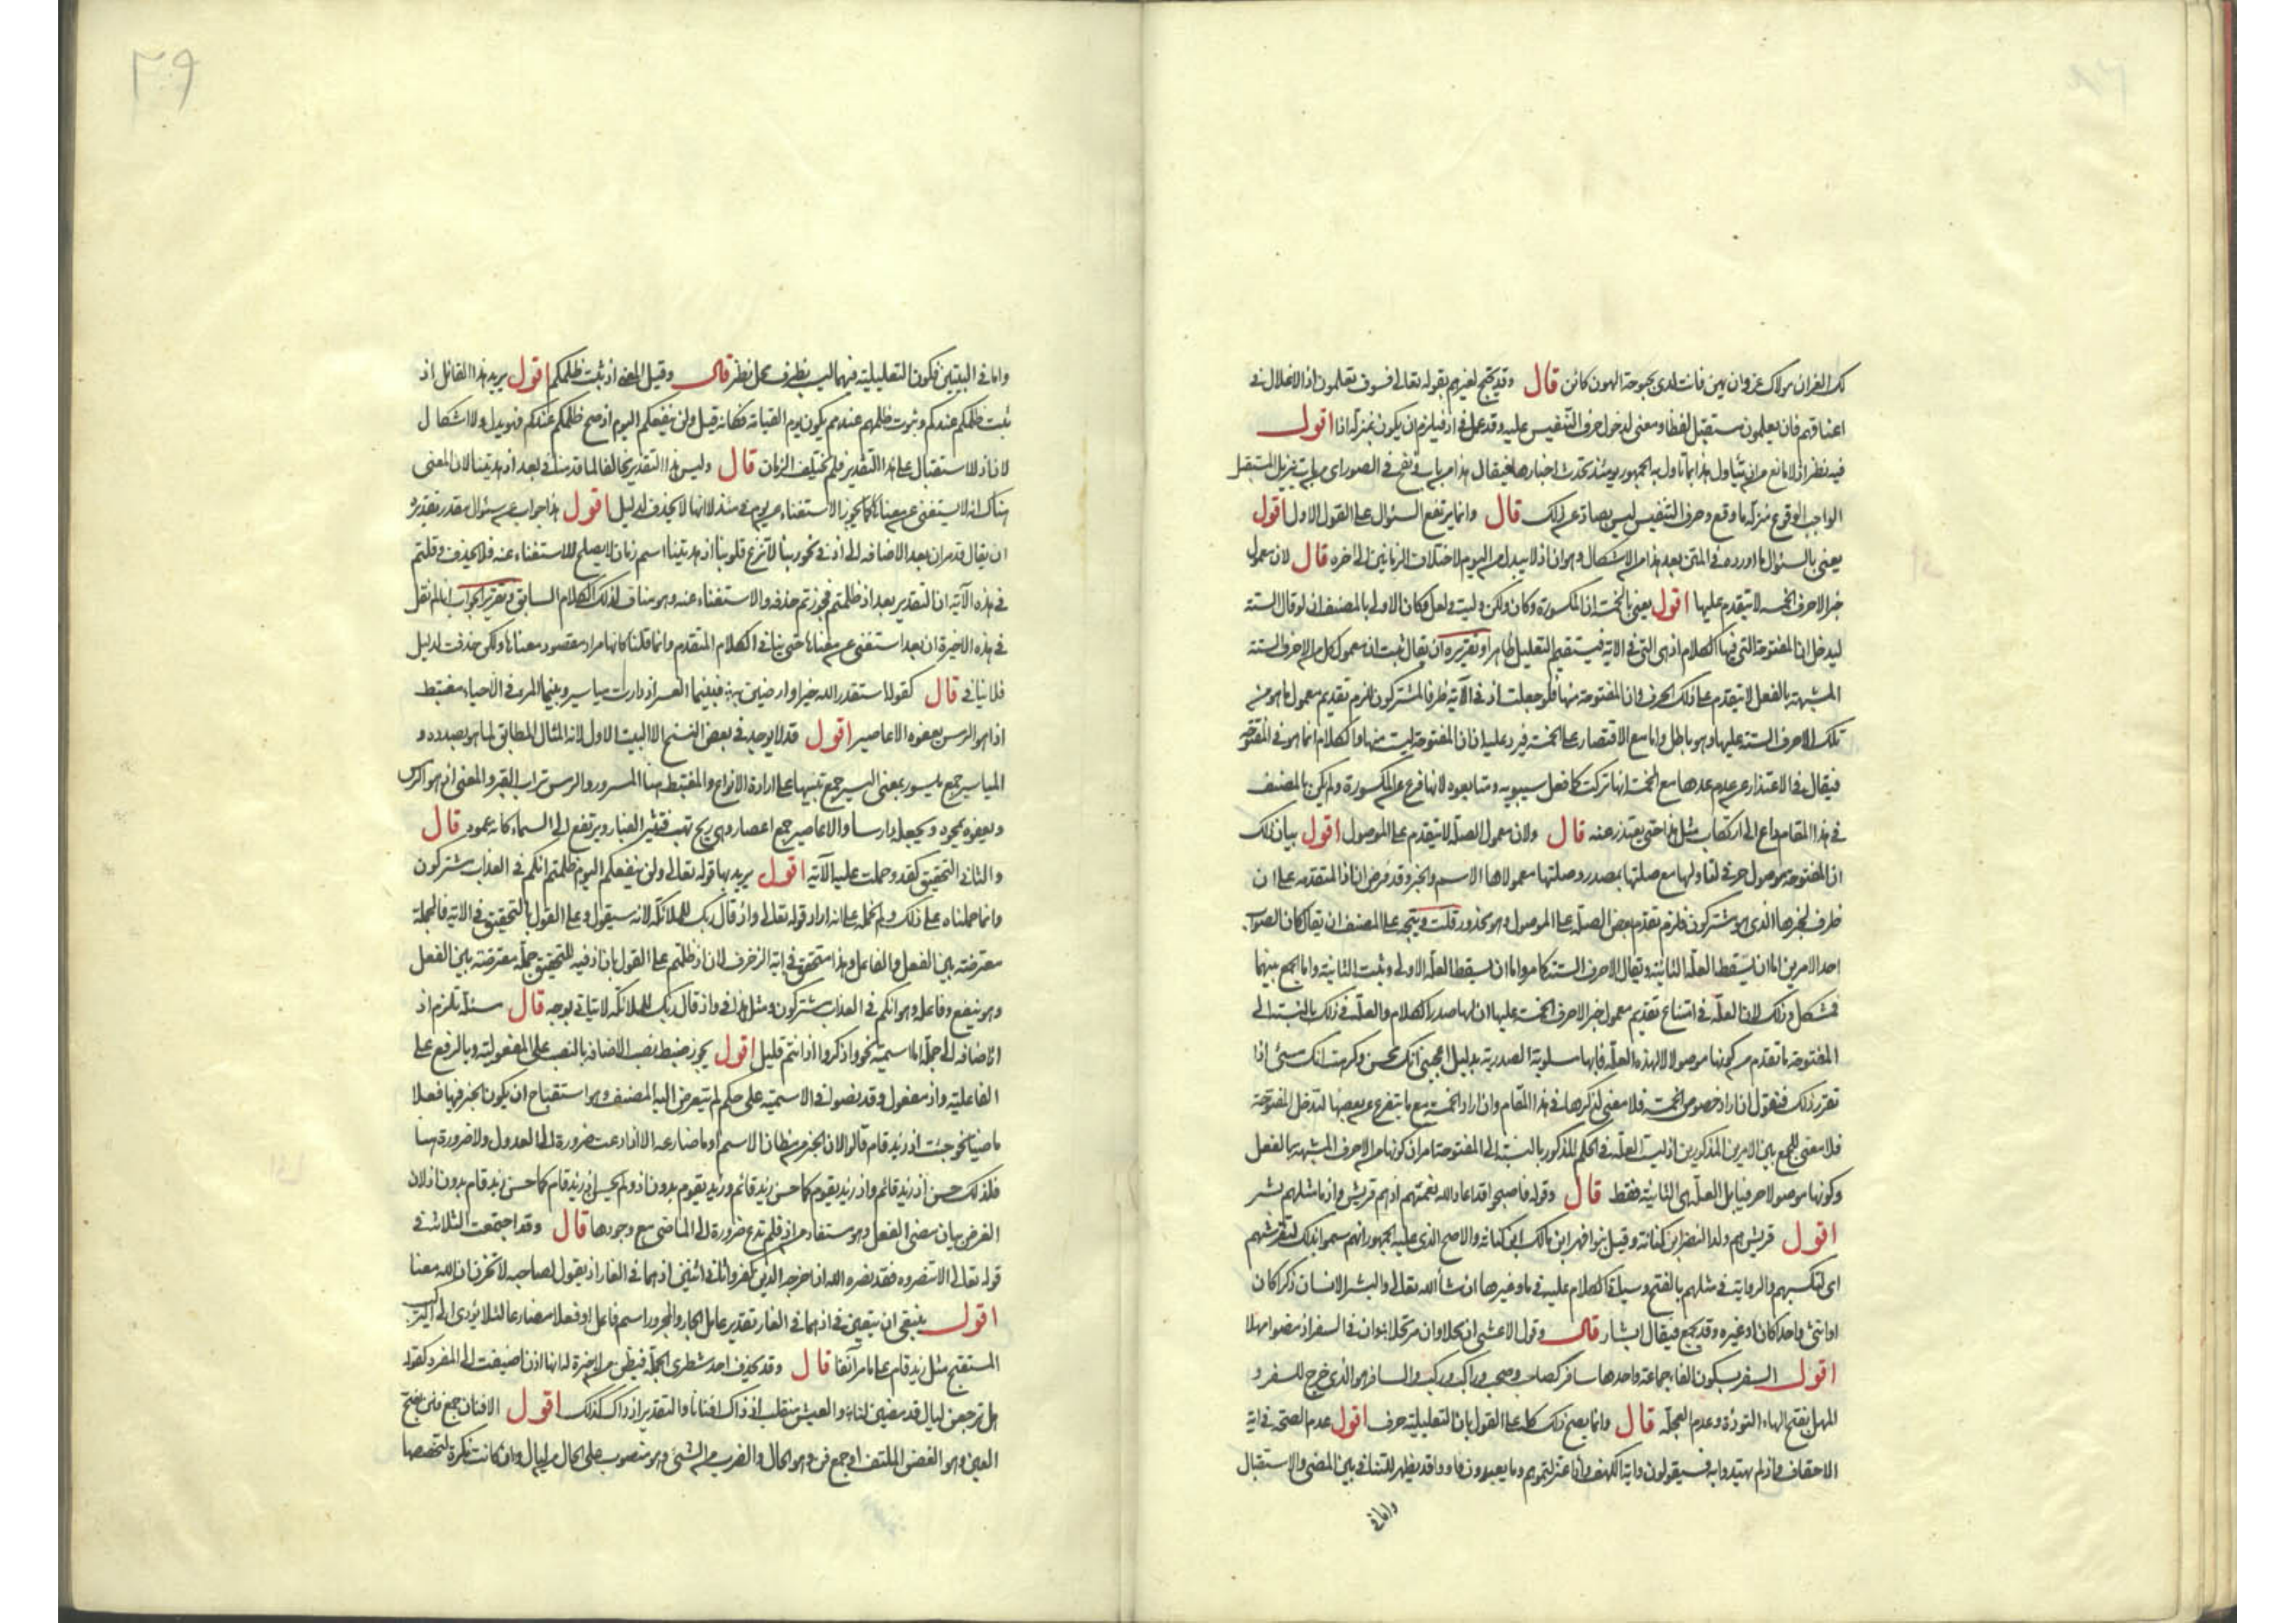 لك العز ان مولاك عز وان يهن فانت لدى بحبوحة الهون كائن قال وقد يحتج لغيرهم بقوله تعالى فسوف يعلمون اذ الاغلال في
اعناقهم فان يعلمون مستقبل لفظا ومعنى لدخول حرف التنفيس عليه وقد عمل في اذ فيلزم ان يكون بمنزلة اذا اقول
فيه نظر اذ لا مانع من ان يتاول هذا بما تاول به الجمهور يومئذ تحدث اخبارها فيقال هذا من باب ونفخ في الصور اى من باب تنزيل المستقبل
الواجب الوقوع منزلة ما وقع وحرف التنفيس ليس بصاد عن ذلك قال وانما يرتفع السؤال على القول الاول اقول
يعنى بالسؤال ما اورده في المتن بعد هذا من الاشكال وهو ان اذ لا يبدل من اليوم لاختلاف الزمانين الى اخره قال لان معمول
خبر الاحرف الخمسة لا يتقدم عليها اقول يعنى بالخمسة ان المكسورة وكان ولكن وليت ولعل فكان الاولى بالمصنف ان لو قال الستة
ليدخل ان المفتوحة التى فيها الكلام اذ هى التى في الاية فيستقيم التعليل ظاهرا وتقريره ان يقال ثبت ان معمول كل من الاحرف الستة
المشبهة بالفعل لا يتقدم على ذلك الحرف وان المفتوحة منها فلو جعلت اذ في الآية ظرفا لمشتركون للزم تقديم معمول ما هو من
تلك الاحرف الستة عليها وهو باطل واما مع الاقتصار على الخمسة فيرد عليه ان ان المفتوحة ليست منها والكلام انما هو في المفتوحة
فيقال في الاعتذار عن عدم عدها مع الخمسة انها تركت كما فعل سيبويه ومتابعوه لانها فرع عن المكسورة ولم يكن بالمصنف
في هذا المقام داع الى ارتكاب مثل هذا حتى يعتذر عنه قال ولان معمول الصلة لا يتقدم على الموصول اقول بيان ذلك
ان المفتوحة موصول حرفى لتاولها مع صلتها بمصدر وصلتها معمولاها الاسم والخبر وقد فرض ان اذ المتقدمة على ان
ظرف لخبرها الذى هو مشتركون فلزم تقدم بعض الصلة على الموصول وهو محذور قلت ويتجه على المصنف ان يقال كان الصواب
احد الامرين اما ان يسقط العلة الثانية ويقال الاحرف الستة كما مر واما ان يسقط العلة الاولى ويثبت الثانية واما الجمع بينهما
فمشكل وذلك لان العلة في امتناع تقديم معمول خبر الاحرف الخمسة عليها ان لها صدر الكلام والعلة في ذلك بالنسبة الى
المفتوحة ما تقدم من كونها موصولا لا لهذه العلة فانها مسلوبة الصدرية بدليل اعجبنى انك محسن وكرهت انك مسئ اذا
تقرر ذلك فنقول ان اراد خصوص الخمسة فلا معنى لذكرها في هذا المقام وان اراد الخمسة مع ما يتفرع عن بعضها لتدخل المفتوحة
فلا معنى للجمع بين الامرين المذكورين اذ ليست العلة في الحكم المذكور بالنسبة الى المفتوحة امران كونها من الاحرف المشبهة بالفعل
وكونها موصولا حرفيا بل العلة هى الثانية فقط قال وقوله فاصبحوا قد اعاد الله نعمتهم اذ هم قريش واذ ما مثلهم بشر
اقول قريش هم ولد النضر ابن كنانة وقيل بنوا فهر ابن مالك ابن كنانة والاصح الذى عليه الجمهور انهم سموا بذلك لتقرشهم
اى لتكسبهم والرواية في مثلهم بالفتح وسياتى الكلام عليه في ما وغيرها ان شاء الله تعالى والبشر الانسان ذكرا كان
او انثى واحدا كان او غيره وقد يجمع فيقال ابشار قال وقول الاعشى ان محلا وان مرتحلا وان في السفر اذ مضوا مهلا
اقول السفر بسكون الفاء جماعة واحدها سافر كصاحب وصحب وراكب وركب والسافر هو الذى خرج للسفر و
المهل بفتح الهاء التؤدة وعدم العجلة قال وانما يصح ذلك كله على القول بان التعليلية حرف اقول عدم الصحة في اية
الاحقاف واذ لم يهتدوا به فسيقولون واية الكهف واذ اعتزلتموهم وما يعبدون فاووا قد يظهر للتنافى بين المضى والاستقبال
واما في
واما في البيتين فكون التعليلية فيهما ليست بظرف محل نظر قال وقيل المعنى اذ ثبت ظلمكم اقول يريد هذا القائل اذ
ثبت ظلمكم عندكم وثبوت ظلمهم عندهم يكون يوم القيامة فكانه قيل ولن ينفعكم اليوم اذ صح ظلمكم عندكم فهو بدل ولا اشكال
لان اذ للاستقبال على هذا التقدير فلم يختلف الزمان قال وليس هذا التقدير مخالفا لما قدمنا في بعد اذ هديتنا لان المعنى
هناك انه لا يستغنى عن معناها كما يجوز الاستغناء عن يوم في يومئذ لا انها لا يحذف لدليل اقول هذا جواب عن سؤال مقدر تقديره
ان يقال قد مر ان بعد الاضافة الى اذ في نحو ربنا لا تزغ قلوبنا اذ هديتنا اسم زمان لا يصلح للاستغناء عنه فلا يحذف وقلتم
في هذه الآية ان التقدير بعد اذ ظلمتم فجوزتم حذفه والاستغناء عنه وهو مناف لذلك الكلام السابق وتقرير الجواب انا لم نقل
في هذه الاخيرة ان بعد استغنى عن معناها حتى ينافى الكلام المتقدم وانما قلنا كانها مراد مقصود معناها ولكن حذفت لدليل
فلا ينافى قال كقوله استقدر الله خيرا وارضين به فبينما العسر اذ دارت مياسير وبينما المرء في الاحياء مغتبط
اذا هو الرمس يعفوه الاعاصير اقول قد لا يوجد في بعض النسخ الا البيت الاول لانه المثال المطابق لما هو بصدده و
المياسير جمع ميسور بمعنى اليسر جمع تنبيها على ارادة الانواع والمغتبط هنا المسرور والرمس تراب القبر والمعنى اذ هو الرمس
ويعفوه يمحوه ويجعله دارسا والاعاصير جمع اعصار وهى ريح تهب فتثير الغبار ويرتفع الى السماء كانه عمود قال
والثانى التحقيق كقد وحملت عليه الآية اقول يريد بها قوله تعالى ولن ينفعكم اليوم اذ ظلمتم انكم في العذاب مشتركون
وانما حملناه على ذلك ولم نحمله على انه اراد قوله تعالى واذ قال ربك للملائكة لانه سيقول وعلى القول بالتحقيق في الاية فالجملة
معترضة بين الفعل والفاعل وهذا متحقق في اية الزخرف لان اذ ظلمتم على القول بان اذ فيه للتحقيق جملة معترضة بين الفعل
وهو ينفع وفاعله وهو انكم في العذاب مشتركون ومثل هذا في واذ قال ربك للملائكة لا يتاتى بوجه قال مسئلة تلزم اذ
الاضافة الى جملة اما اسمية نحو واذكروا اذ انتم قليل اقول يجوز ضبط نصب الاضافة بالنصب على المفعولية وبالرفع على
الفاعلية واذ مفعول وقد نصوا في الاسمية على حكم لم يتعرض اليه المصنف وهو استقباح ان يكون الخبر فيها فعلا
ماضيا نحو جئت اذ زيد قام قالوا لان الخبر من مظان الاسم او ما ضارعه الا اذا دعت ضرورة الى العدول ولا ضرورة هنا
فلذلك حسن اذ زيد قائم واذ زيد يقوم كما حسن زيد قائم وزيد يقوم بدون اذ ولم يحسن اذ زيد قام كما حسن زيد قام بدون اذ لان
الغرض بيان مضى الفعل وهو مستفاد من اذ فلم تدع ضرورة الى الماضى مع وجودها قال وقد اجتمعت الثلاثة في
قوله تعالى الا تنصروه فقد نصره الله اذ اخرجه الذين كفروا ثانى اثنين اذ هما في الغار اذ يقول لصاحبه لا تحزن ان الله معنا
اقول ينبغى ان يتعين في اذ هما في الغار تقدير عامل الجار والمجرور اسم فاعل او فعلا مضارعا لئلا يؤدى الى التركيب
المستقبح مثل زيد قام على ما مر آنفا قال وقد يحذف احد شطرى الجملة فيظن من لا خبرة له انها اذن اضيفت الى المفرد كقوله
هل ترجعن ليال قد مضين لنا والعيش منقلب اذ ذاك افنانا والتقدير اذ ذاك كذلك اقول الافنان جمع فنن بفتح
العين وهو الغصن الملتف او جمع فن وهو الحال والضرب من الشئ وهو منصوب على الحال من ليال وان كانت نكرة لتخصصها